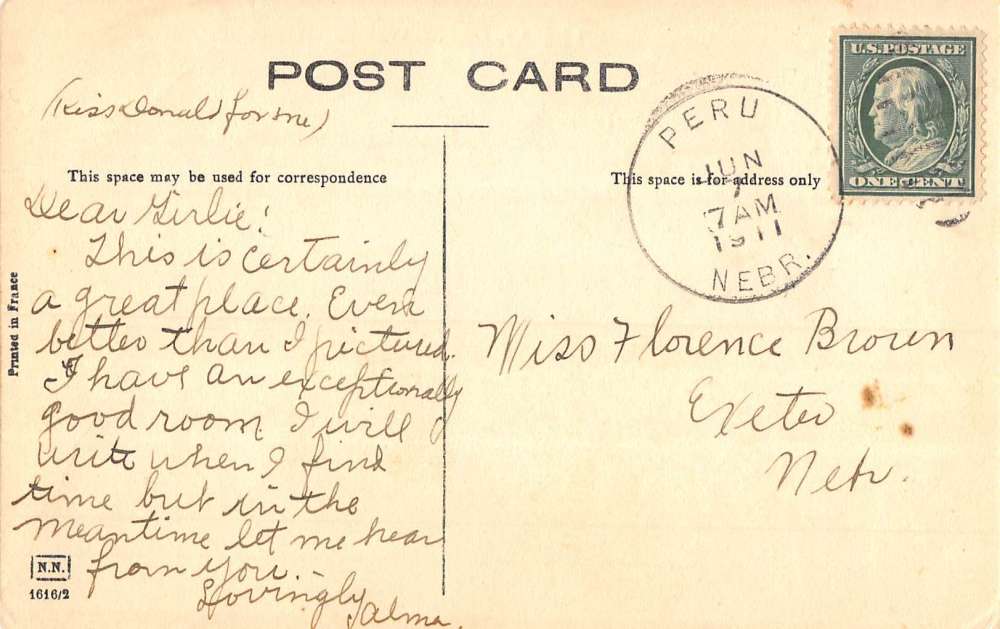 POST CARD
(Kiss Donald for me)
This space may be used for correspondence
Dear Girlie!
This is certainly
a great place. Even
better than I pictured.
I have an exceptionally
good room I will
write when I find
time but in the
meantime let me hear
from you.–
Lovingly
Alma.
Printed in France
N.N.
1616/2
This space is for address only
PERU
JUN
7
7 AM
1911
NEBR.
U.S. POSTAGE
ONE CENT
Miss Florence Brown
Exeter
Nebr.